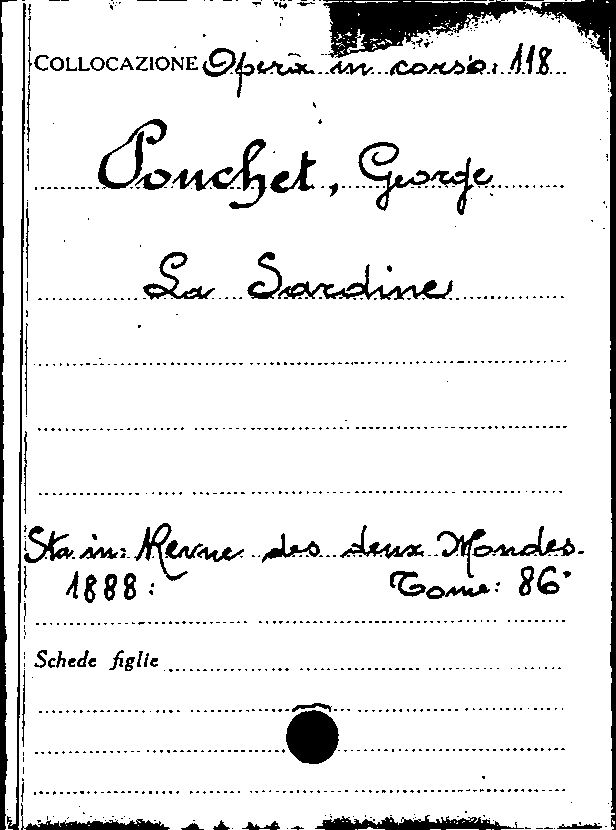 COLLOCAZIONE Opera in corso: 118
Pouchet, George
La Sardine
Sta in: Revue des deux Mondes.
1888: Tome: 86°
Schede figlie